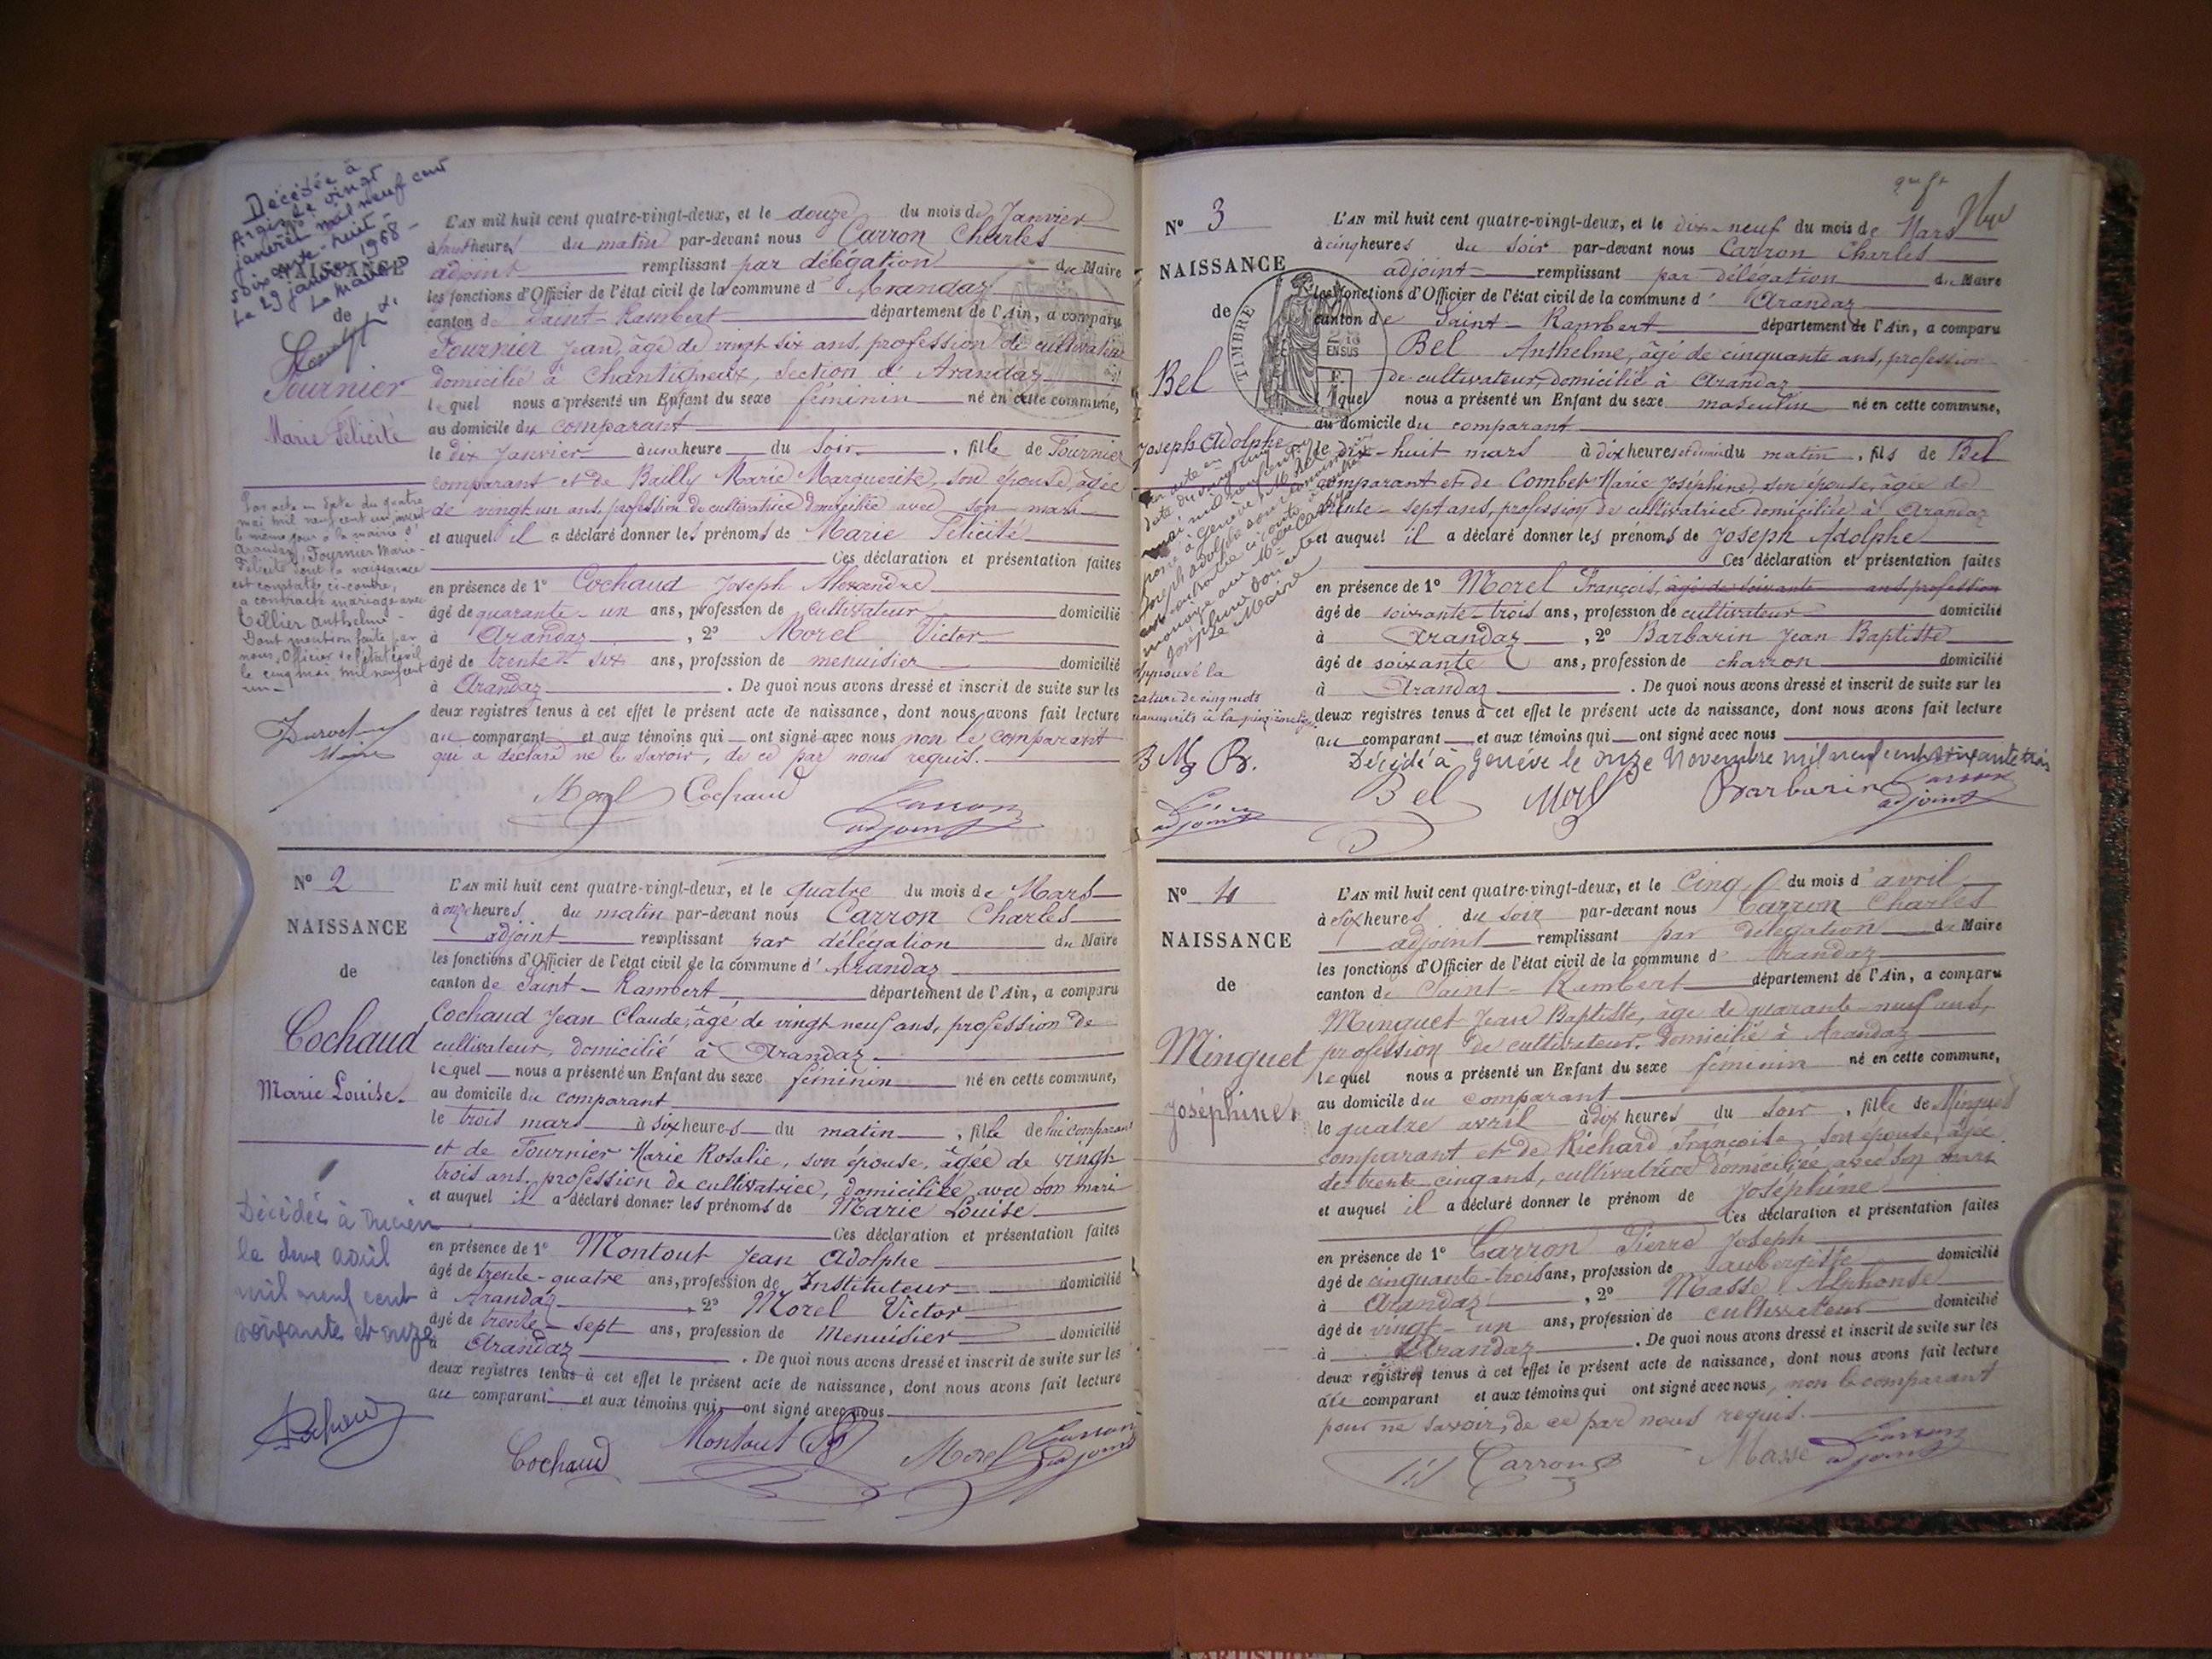 Décédée à
le vingt
janvier mil neuf cent
soixante-huit -
Le 29 janvier 1968 -
Le Maire
NAISSANCE
de
Fournier
Marie Félicité
Par acte en date du quatre
mai mil neuf cent un, inscrit
le même jour à la mairie d'
Arandaz, Fournier Marie-
Félicité dont la naissance
est constatée ci-contre,
a contracté mariage avec
Tillier Anthelme -
Dont mention faite par
nous, Officier de l'état civil
le cinq mai mil neuf cent
un -
Maire
L'AN mil huit cent quatre-vingt-deux, et le douze du mois de Janvier
à heures du matin par-devant nous Carron Charles
adjoint remplissant par délégation du Maire
les fonctions d'Officier de l'état civil de la commune d' Arandaz
canton de Saint-Rambert département de l'Ain, a comparu
Fournier Jean, âgé de vingt six ans, profession de cultivateur
domicilié à Section d' Arandaz
lequel nous a présenté un Enfant du sexe féminin né en cette commune,
au domicile du comparant
le dix Janvier à une heure du soir, fille de Fournier
comparant et de Bailly Marie Marguerite, son épouse, âgée
de vingt un ans, profession de cultivatrice domiciliée avec son mari
et auquel il a déclaré donner les prénoms de Marie Félicité
Ces déclaration et présentation faites
en présence de 1° Cochaud Joseph Alexandre
âgé de quarante-un ans, profession de cultivateur domicilié
à Arandaz, 2° Morel Victor
âgé de trente six ans, profession de menuisier domicilié
à Arandaz. De quoi nous avons dressé et inscrit de suite sur les
deux registres tenus à cet effet le présent acte de naissance, dont nous avons fait lecture
au comparant et aux témoins qui ont signé avec nous non le comparant
qui a déclaré ne le savoir, de ce par nous requis.
Morel Cochaud Carron
adjoint
N° 2
NAISSANCE
de
Cochaud
Marie Louise.
Décédée à
le avril
mil neuf cent
soixante et onze
L'AN mil huit cent quatre-vingt-deux, et le quatre du mois de Mars
à onze heures du matin par-devant nous Carron Charles
adjoint remplissant par délégation du Maire
les fonctions d'Officier de l'état civil de la commune d' Arandaz
canton de Saint-Rambert département de l'Ain, a comparu
Cochaud Jean Claude, âgé de vingt neuf ans, profession de
cultivateur, domicilié à Arandaz
lequel nous a présenté un Enfant du sexe féminin né en cette commune,
au domicile du comparant
le trois mars à six heures du matin, fille de lui comparant
et de Fournier Marie Rosalie, son épouse, âgée de vingt
trois ans, profession de cultivatrice, domiciliée avec son mari
et auquel il a déclaré donner les prénoms de Marie Louise
Ces déclaration et présentation faites
en présence de 1° Montout Jean Adolphe
âgé de trente-quatre ans, profession de Instituteur domicilié
à Arandaz, 2° Morel Victor
âgé de trente-sept ans, profession de Menuisier domicilié
à Arandaz. De quoi nous avons dressé et inscrit de suite sur les
deux registres tenus à cet effet le présent acte de naissance, dont nous avons fait lecture
au comparant et aux témoins qui ont signé avec nous
Cochaud Montout Morel Carron
adjoint
N° 3
NAISSANCE
de
Bel
Joseph Adolphe
TIMBRE
EN SUS
Approuvé la
rature de cinq mots
B M B.
adjoint
L'AN mil huit cent quatre-vingt-deux, et le dix-neuf du mois de Mars
à cinq heures du soir par-devant nous Carron Charles
adjoint remplissant par délégation du Maire
les fonctions d'Officier de l'état civil de la commune d' Arandaz
canton de Saint-Rambert département de l'Ain, a comparu
Bel Anthelme, âgé de cinquante ans, profession
de cultivateur, domicilié à Arandaz
lequel nous a présenté un Enfant du sexe masculin né en cette commune,
au domicile du comparant
le dix-huit mars à dix heures et demie du matin, fils de Bel
comparant et de Combet Marie Joséphine, son épouse, âgée de
trente-sept ans, profession de cultivatrice domiciliée à Arandaz
et auquel il a déclaré donner les prénoms de Joseph Adolphe
Ces déclaration et présentation faites
en présence de 1° Morel François, âgé de soixante ans, profession
âgé de soixante-trois ans, profession de cultivateur domicilié
à Arandaz, 2° Barbarin Jean Baptiste
âgé de soixante ans, profession de charron domicilié
à Arandaz. De quoi nous avons dressé et inscrit de suite sur les
deux registres tenus à cet effet le présent acte de naissance, dont nous avons fait lecture
au comparant et aux témoins qui ont signé avec nous
Décédé à Genève le onze Novembre mil neuf cent soixante trois
Bel Morel Barbarin Carron
adjoint
N° 4
NAISSANCE
de
Minguet
Joséphine.
L'AN mil huit cent quatre-vingt-deux, et le cinq du mois d'avril
à six heures du soir par-devant nous Carron Charles
adjoint remplissant par délégation du Maire
les fonctions d'Officier de l'état civil de la commune d' Arandaz
canton de Saint-Rambert département de l'Ain, a comparu
Minguet Jean Baptiste, âgé de quarante-neuf ans,
profession de cultivateur, domicilié à Arandaz
lequel nous a présenté un Enfant du sexe féminin né en cette commune,
au domicile du comparant
le quatre avril à dix heures du soir, fille de Minguet
comparant et de Richard Françoise, son épouse, âgée
de trente-cinq ans, cultivatrice domiciliée avec son mari
et auquel il a déclaré donner le prénom de Joséphine
Ces déclaration et présentation faites
en présence de 1° Carron Pierre Joseph
âgé de cinquante-trois ans, profession de aubergiste domicilié
à Arandaz, 2° Masse Alphonse
âgé de vingt-un ans, profession de cultivateur domicilié
à Arandaz. De quoi nous avons dressé et inscrit de suite sur les
deux registres tenus à cet effet le présent acte de naissance, dont nous avons fait lecture
au comparant et aux témoins qui ont signé avec nous, non le comparant
pour ne savoir, de ce par nous requis.
Carron Masse Carron
adjoint